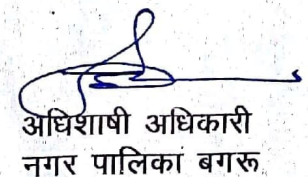 अधिशाषी अधिकारी
नगर पालिका बगरू